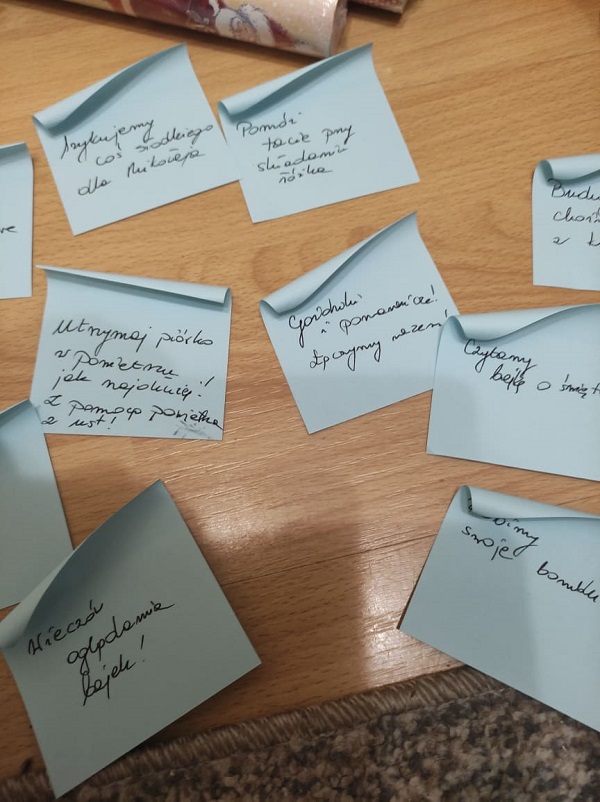 Szykujemy
coś słodkiego
dla Mikołaja
Pomóż
tacie przy
składaniu
łóżka
Utrzymaj piórko
w powietrzu
jak najdłużej!
Z pomocą powietrza
z ust!
Goździki
i pomarańcze!
Łączymy razem!
Czytamy
bajkę o
swoje bombki
Wieczór
oglądania
bajek!